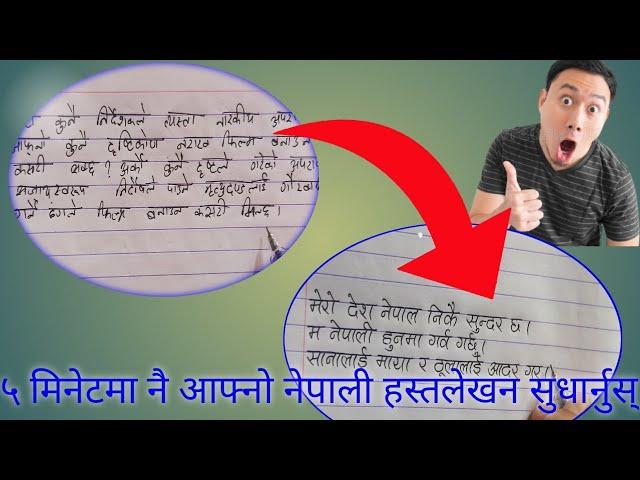 कुनै निर्देशकले त्यस्ता नारकीय
आफ्नो कुनै दृष्टिकोण नराख फिल्म बनाउन
कसरी सक्छ? अर्को कुनै दृष्टले गरेको
निर्दोषले पाउने मृत्युदण्डलाई
गर्ने ढंगले फिल्म बनाउन कसरी मिल्छ।
मेरो देश नेपाल निकै सुन्दर छ।
म नेपाली हुनमा गर्व गर्छु।
सानालाई माया र ठूलालाई आदर गर।
५ मिनेटमा नै आफ्नो नेपाली हस्तलेखन सुधार्नुस्